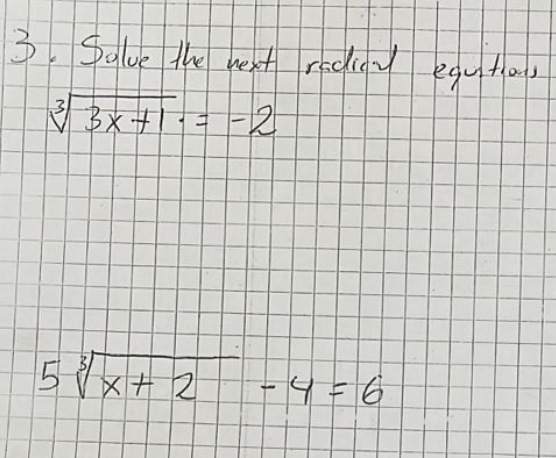 3. Solve the next radical equations
∛(3x+1) = -2
5 ∛(x+2) - 4 = 6